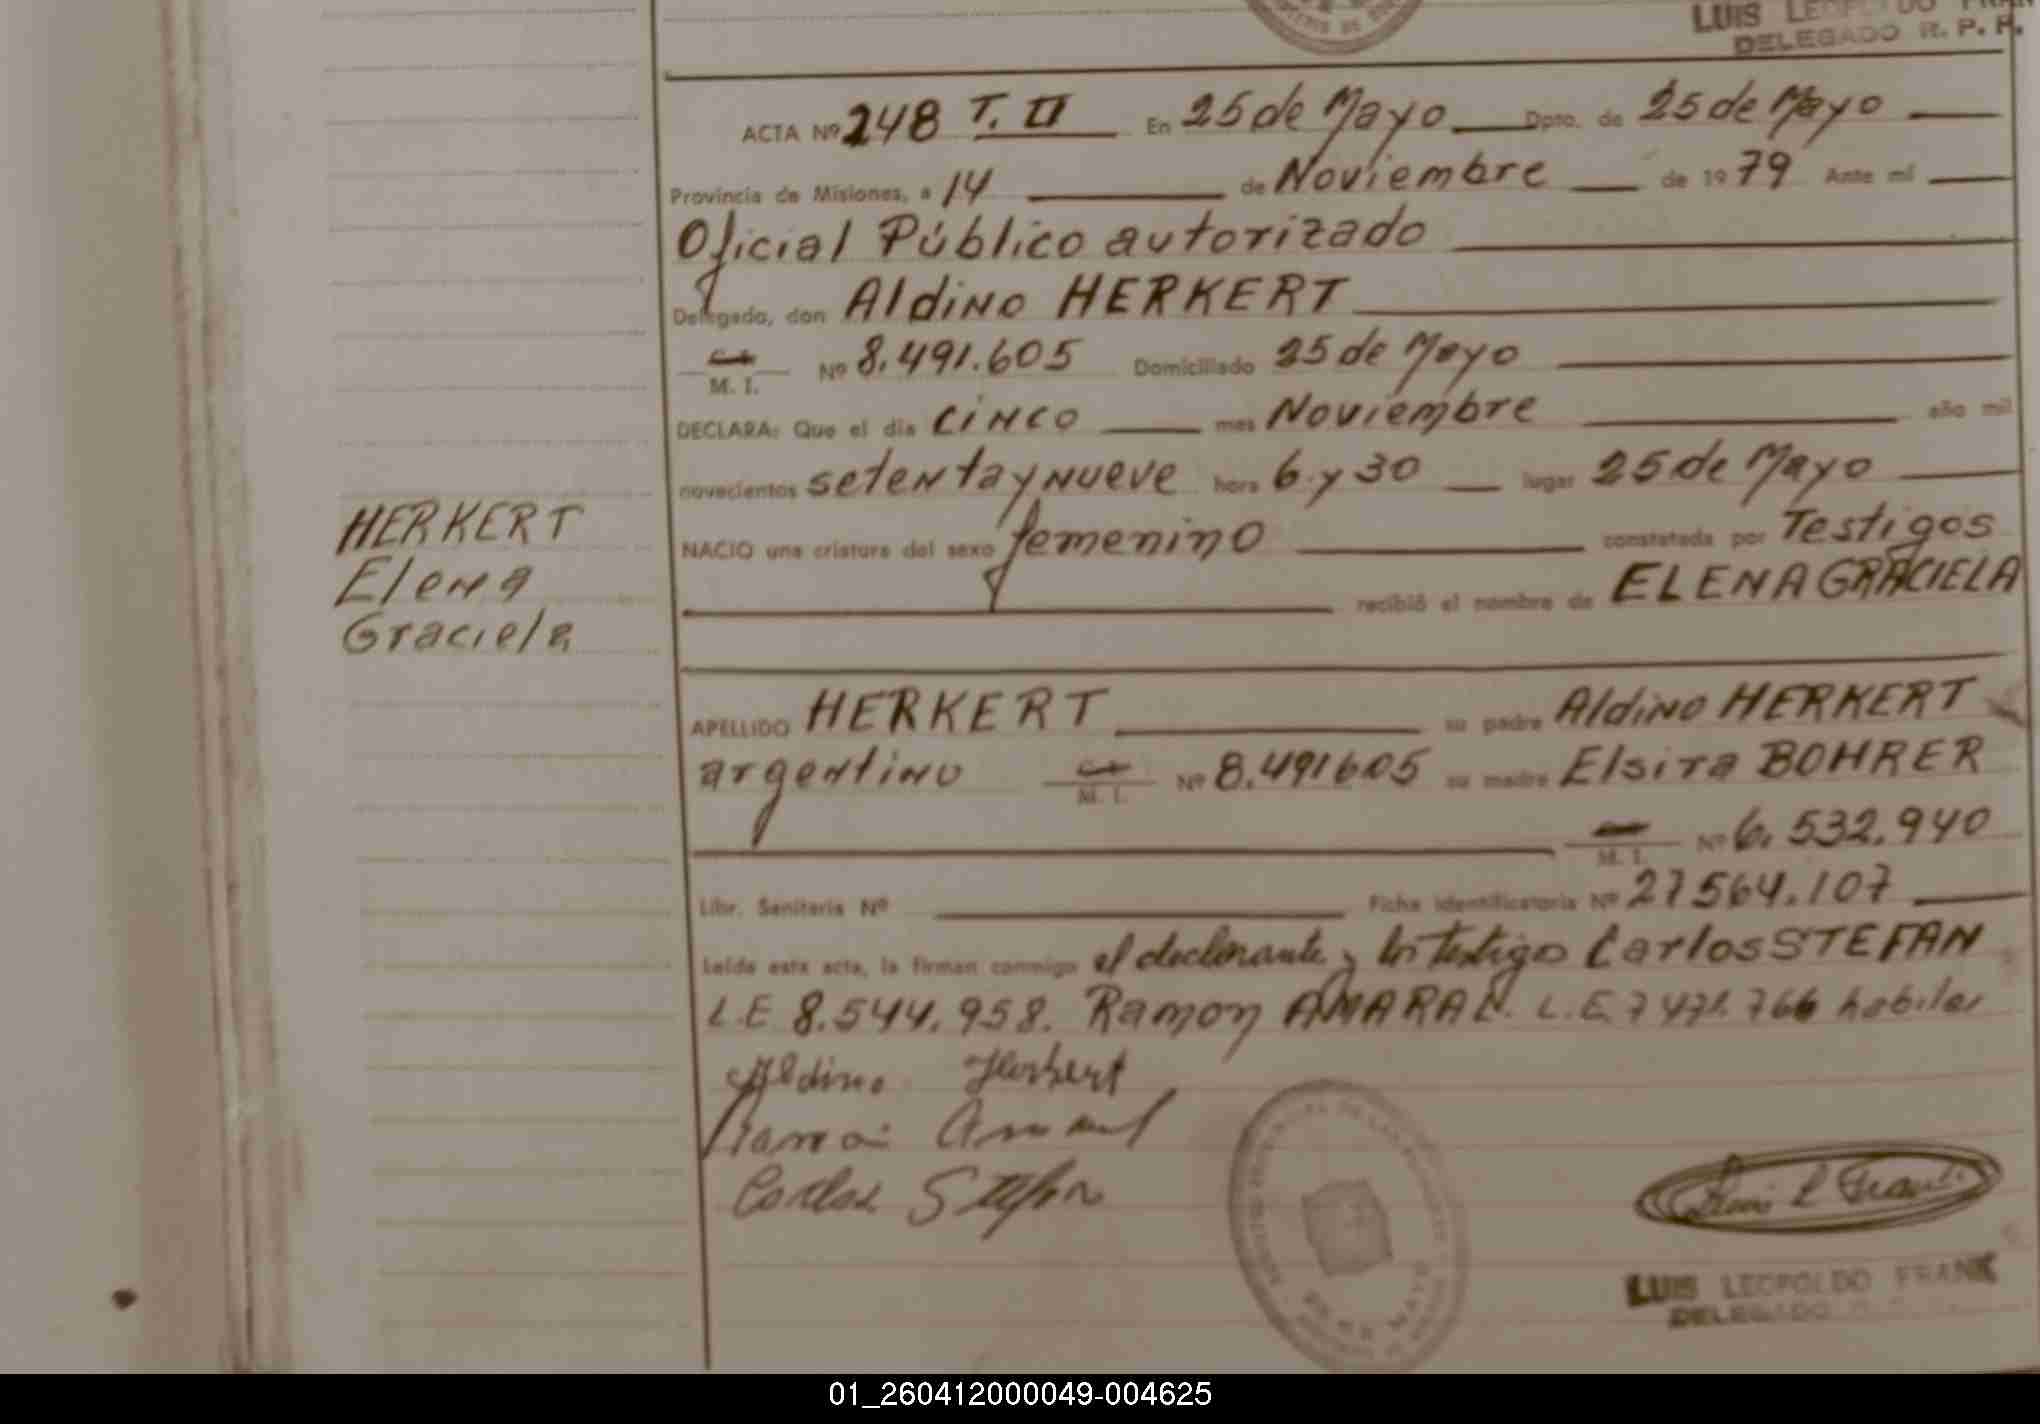 LUIS LEOPOLDO FRANK
DELEGADO R. P. P.
ACTA Nº 248 T. II En 25 de Mayo Dpto. de 25 de Mayo
Provincia de Misiones, a 14 de Noviembre de 1979 Ante mi
Oficial Público autorizado
Delegado, don Aldino HERKERT
M. I. Nº 8.491.605 Domiciliado 25 de Mayo
DECLARA: Que el día CINCO mes Noviembre año mil
novecientos setenta y nueve hora 6 y 30 lugar 25 de Mayo
NACIO una criatura del sexo femenino constatada por Testigos
recibió el nombre de ELENA GRACIELA
HERKERT
Elena
Graciela
APELLIDO HERKERT su padre Aldino HERKERT
argentino M. I. Nº 8.491605 su madre Elsira BOHRER
M. I. Nº 6.532.940
Libr. Sanitaria Nº Ficha identificatoria Nº 27564.107
Leída esta acta, la firman conmigo el declarante y los testigo Carlos STEFAN
L.E 8.544.958. Ramon AMARAL. L.E. 7 471.766 habiles
Aldino Herkert
Ramon Amaral
Carlos Stefan
LUIS LEOPOLDO FRANK
DELEGADO
01_260412000049-004625